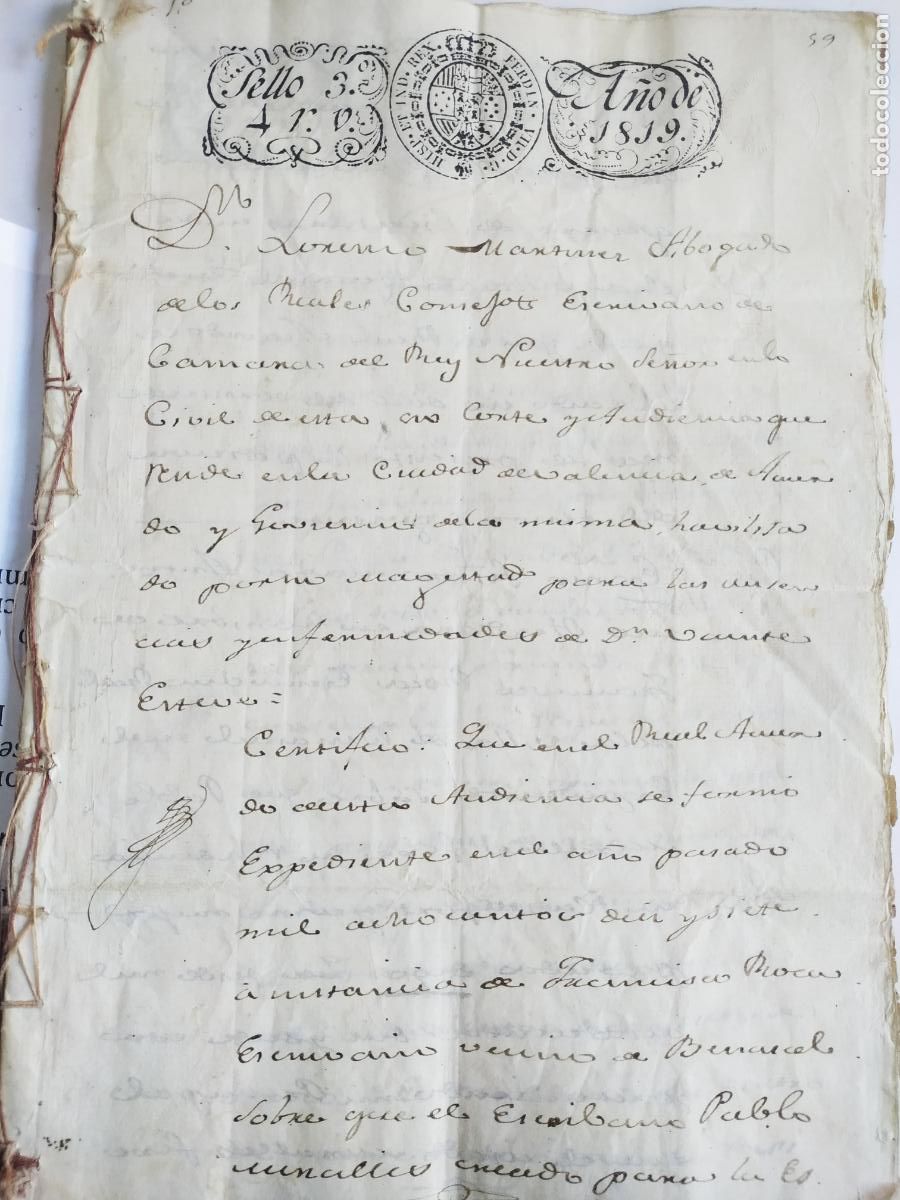 1º
59
Sello 3.º
4 r.s v.n
HISP. ET IND. REX. FERDIN. VII. D. G.
Año de
1819.
Dn. Lorenzo Martinez Abogado
de los Reales Consejos Escrivano de
Camara del Rey Nuestro Señor en lo
Civil de esta su Corte y Audiencia que
recide en la Ciudad de Valencia, de Acuer
do y Govierno de la misma, havilita
do por su Magestad para las ausen
cias y enfermedades de Dn. Vicente
Esteve =
Certifico: Que en el Real Acuer
do de esta Audiencia se formó
Expediente en el año pasado
mil ochocientos diez y siete
á instancia de Francisco Roca
Escrivano vecino de Benasal
sobre que el Escribano Pablo
Miralles creado para la Es
todocoleccion